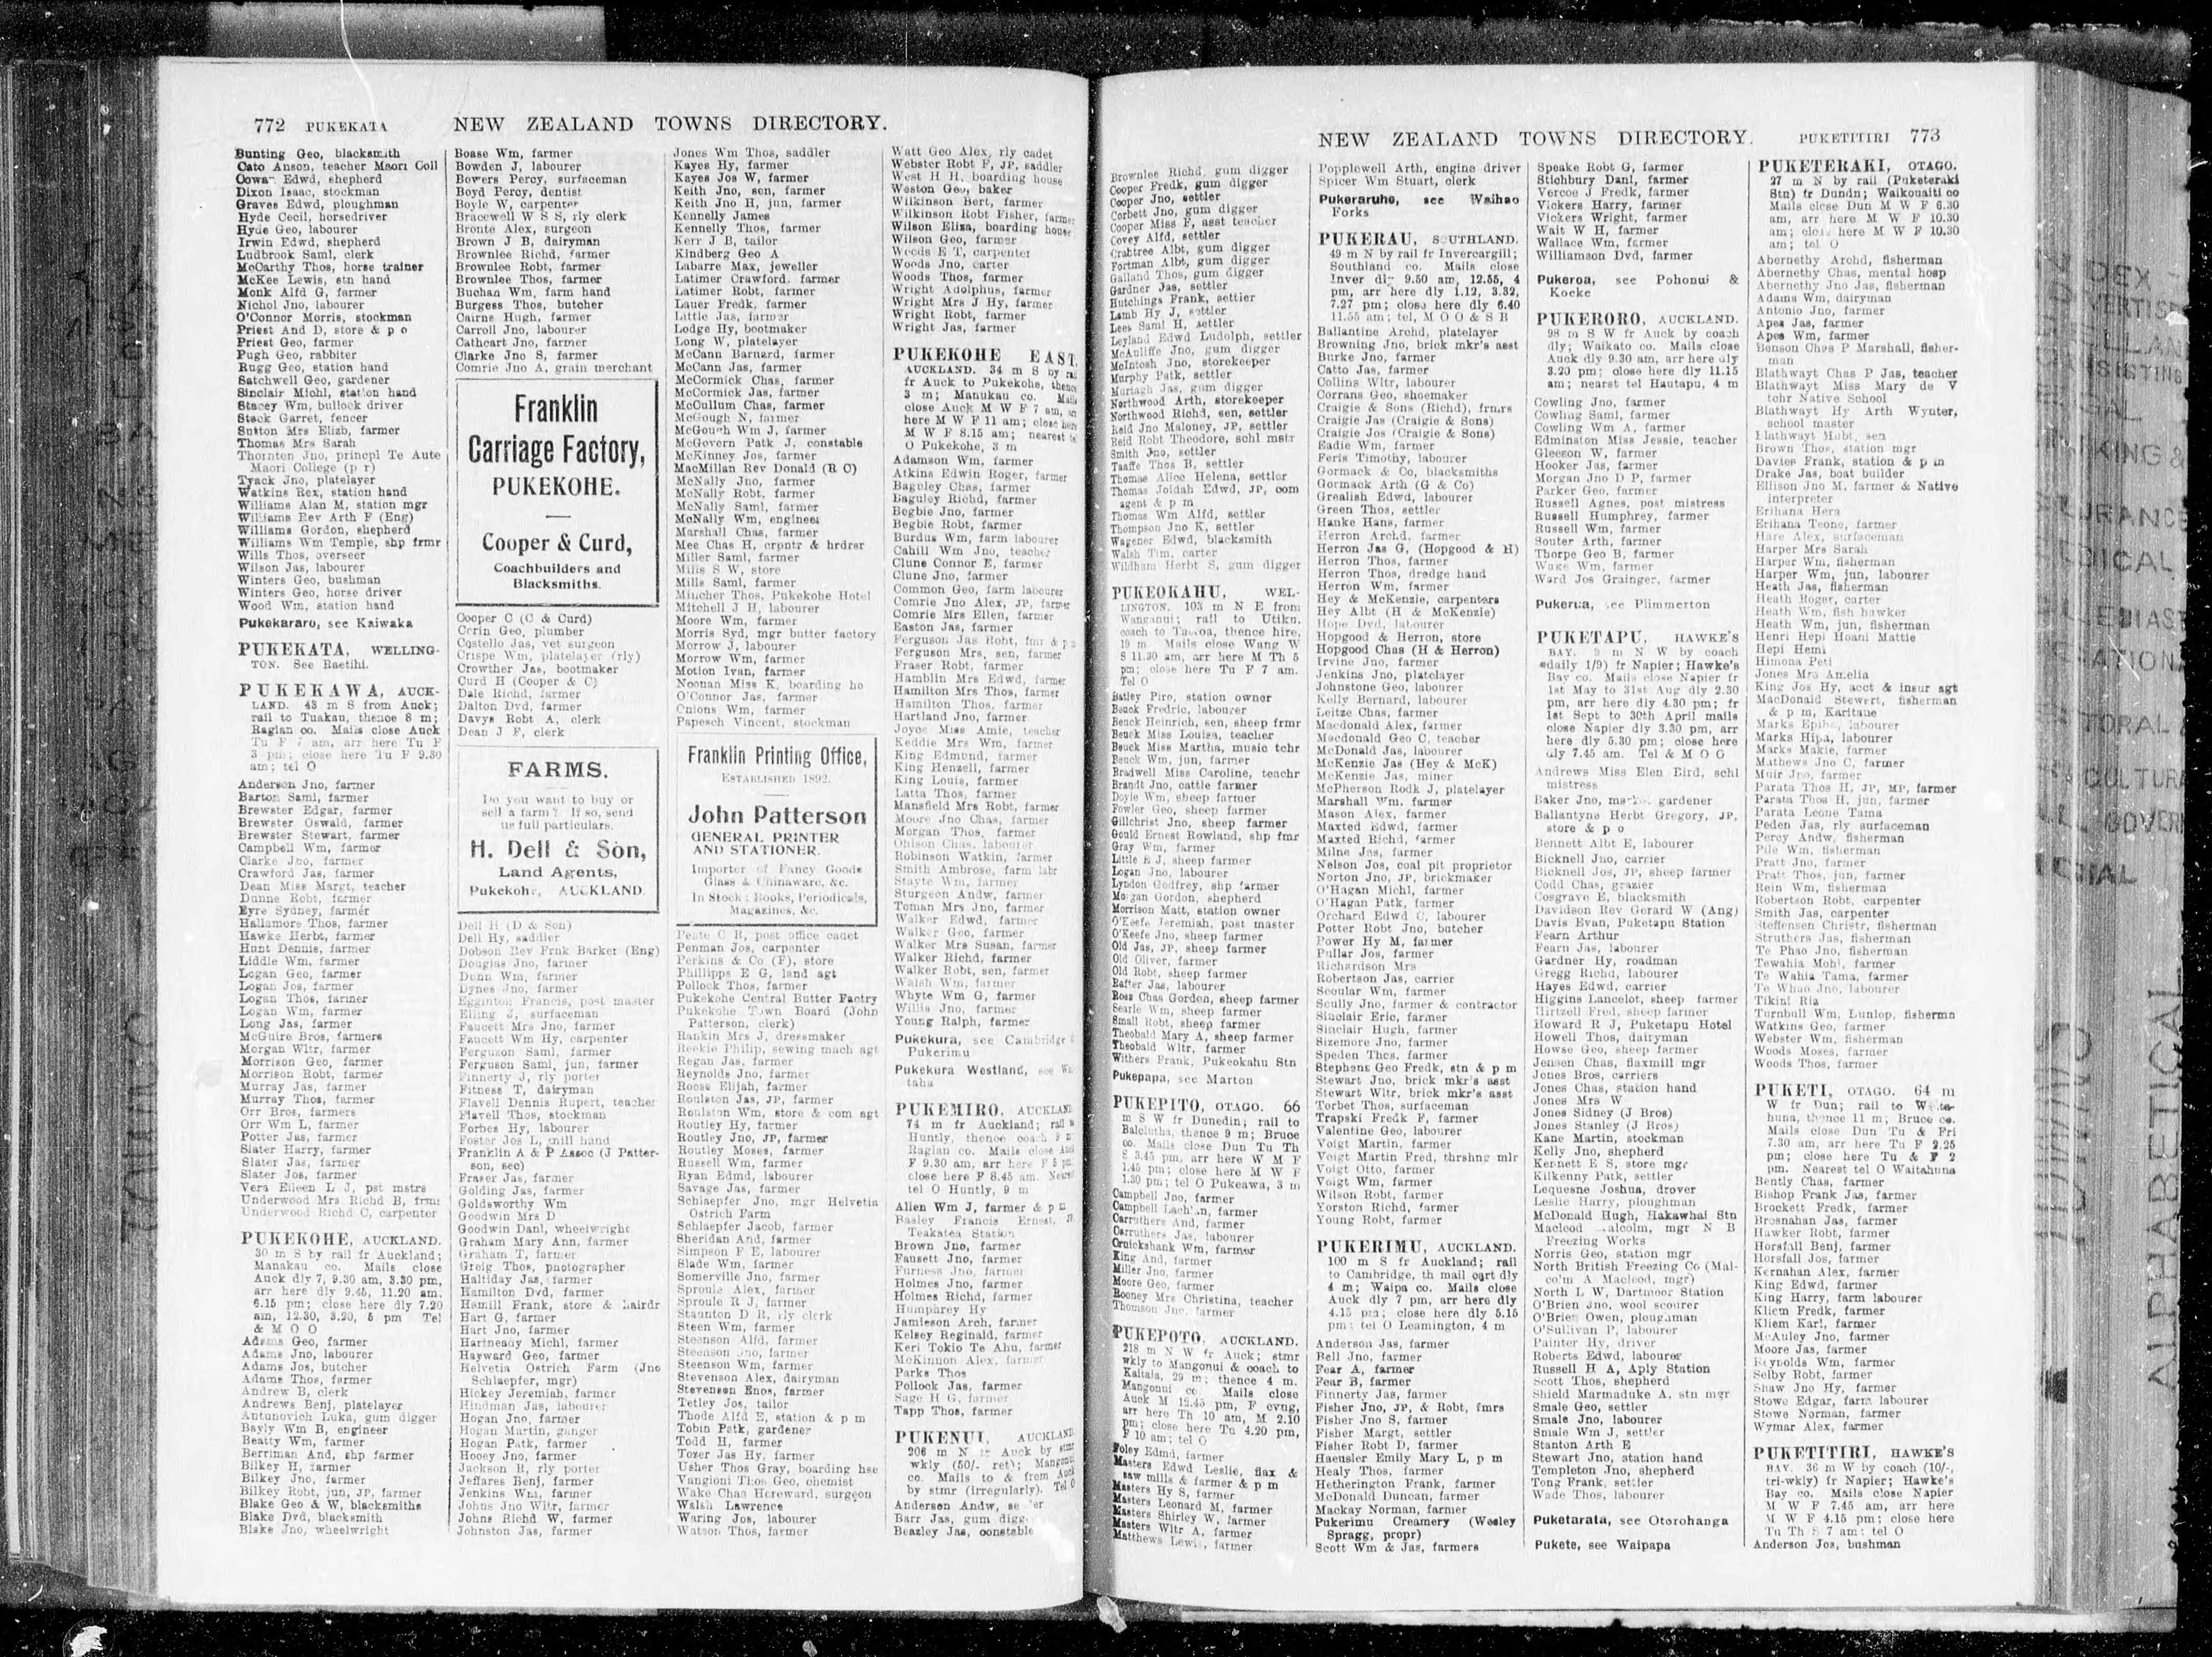 772 PUKEKATA NEW ZEALAND TOWNS DIRECTORY.
Bunting Geo, blacksmith
Cato Anson, teacher Maori Coll
Cowan Edwd, shepherd
Dixon Isaac, stockman
Graves Edwd, ploughman
Hyde Cecil, horsedriver
Hyde Geo, labourer
Irwin Edwd, shepherd
Ludbrook Saml, clerk
McCarthy Thos, horse trainer
McKee Lewis, stn hand
Monk Alfd G, farmer
Nichol Jno, labourer
O'Connor Morris, stockman
Priest And D, store & p o
Priest Geo, farmer
Pugh Geo, rabbiter
Rugg Geo, station hand
Satchwell Geo, gardener
Sinclair Michl, station hand
Stacey Wm, bullock driver
Stack Garret, fencer
Sutton Mrs Elizb, farmer
Thomas Mrs Sarah
Thornton Jno, princpl Te Aute
Maori College (p r)
Tyack Jno, platelayer
Watkins Rex, station hand
Williams Alan M, station mgr
Williams Rev Arth F (Eng)
Williams Gordon, shepherd
Williams Wm Temple, shp frmr
Wills Thos, overseer
Wilson Jas, labourer
Winters Geo, bushman
Winters Geo, horse driver
Wood Wm, station hand
Pukekararo, see Kaiwaka
PUKEKATA, WELLING-
TON. See Raetihi.
PUKEKAWA, AUCK-
LAND. 43 m S from Auck;
rail to Tuakau, thence 8 m;
Raglan co. Mails close Auck
Tu F 7 am, arr here Tu F
3 pm; close here Tu F 9.30
am; tel O
Anderson Jno, farmer
Barton Saml, farmer
Brewster Edgar, farmer
Brewster Oswald, farmer
Brewster Stewart, farmer
Campbell Wm, farmer
Clarke Jno, farmer
Crawford Jas, farmer
Dean Miss Margt, teacher
Dunne Robt, farmer
Eyre Sydney, farmer
Hallamore Thos, farmer
Hawke Herbt, farmer
Hunt Dennis, farmer
Liddle Wm, farmer
Logan Geo, farmer
Logan Jos, farmer
Logan Thos, farmer
Logan Wm, farmer
Long Jas, farmer
McGuire Bros, farmers
Morgan Wltr, farmer
Morrison Geo, farmer
Morrison Robt, farmer
Murray Jas, farmer
Murray Thos, farmer
Orr Bros, farmers
Orr Wm L, farmer
Potter Jas, farmer
Slater Harry, farmer
Slater Jas, farmer
Slater Jos, farmer
Vera Eileen L J, pst mstrs
Underwood Mrs Richd B, frmr
Underwood Richd C, carpenter
PUKEKOHE, AUCKLAND.
30 m S by rail fr Auckland;
Manakau co. Mails close
Auck dly 7, 9.30 am, 3.30 pm,
arr here dly 9.45, 11.20 am,
6.15 pm; close here dly 7.20
am, 12.30, 3.20, 5 pm Tel
& M O O
Adams Geo, farmer
Adams Jno, labourer
Adams Jos, butcher
Adams Thos, farmer
Andrew B, clerk
Andrews Benj, platelayer
Antunovich Luka, gum digger
Bayly Wm B, engineer
Beatty Wm, farmer
Berriman And, shp farmer
Bilkey H, farmer
Bilkey Jno, farmer
Bilkey Robt, jun, JP, farmer
Blake Geo & W, blacksmiths
Blake Dvd, blacksmith
Blake Jno, wheelwright
Boase Wm, farmer
Bowden J, labourer
Bowers Percy, surfaceman
Boyd Percy, dentist
Boyle W, carpenter
Bracewell W S S, rly clerk
Bronte Alex, surgeon
Brown J B, dairyman
Brownlee Richd, farmer
Brownlee Robt, farmer
Brownlee Thos, farmer
Buchan Wm, farm hand
Burgess Thos, butcher
Cairns Hugh, farmer
Carroll Jno, labourer
Cathcart Jno, farmer
Clarke Jno S, farmer
Comrie Jno A, grain merchant
Franklin
Carriage Factory,
PUKEKOHE.
Cooper & Curd,
Coachbuilders and
Blacksmiths.
Cooper C (C & Curd)
Corin Geo, plumber
Costello Jas, vet surgeon
Crispe Wm, platelayer (rly)
Crowther Jas, bootmaker
Curd H (Cooper & C)
Dale Richd, farmer
Dalton Dvd, farmer
Davys Robt A, clerk
Dean J F, clerk
FARMS.
Do you want to buy or
sell a farm? If so, send
us full particulars.
H. Dell & Son,
Land Agents,
Pukekohe, AUCKLAND.
Dell H (D & Son)
Dell Hy, saddler
Dobson Rev Frnk Barker (Eng)
Douglas Jno, farmer
Dunn Wm, farmer
Dynes Jno, farmer
Egginton Francis, post master
Elling J, surfaceman
Faucett Mrs Jno, farmer
Faucett Wm Hy, carpenter
Ferguson Saml, farmer
Ferguson Saml, jun, farmer
Finnerty J, rly porter
Fitness T, dairyman
Flavell Dennis Rupert, teacher
Flavell Thos, stockman
Forbes Hy, labourer
Foster Jos L, mill hand
Franklin A & P Assoc (J Patter-
son, sec)
Fraser Jas, farmer
Golding Jas, farmer
Goldsworthy Wm
Goodwin Mrs D
Goodwin Danl, wheelwright
Graham Mary Ann, farmer
Graham T, farmer
Greig Thos, photographer
Halliday Jas, farmer
Hamilton Dvd, farmer
Hamill Frank, store & hairdr
Hart G, farmer
Hart Jno, farmer
Hartneany Michl, farmer
Hayward Geo, farmer
Helvetia Ostrich Farm (Jno
Schlaepfer, mgr)
Hickey Jeremiah, farmer
Hindman Jas, labourer
Hogan Jno, farmer
Hogan Martin, ganger
Hogan Patk, farmer
Hooey Jno, farmer
Jackson R, rly porter
Jeffares Benj, farmer
Jenkins Wm, farmer
Johns Jno Wltr, farmer
Johns Richd W, farmer
Johnston Jas, farmer
Jones Wm Thos, saddler
Kayes Hy, farmer
Kayes Jos W, farmer
Keith Jno, sen, farmer
Keith Jno H, jun, farmer
Kennelly James
Kennelly Thos, farmer
Kerr J B, tailor
Kindberg Geo A
Labarre Max, jeweller
Latimer Crawford, farmer
Latimer Robt, farmer
Lauer Fredk, farmer
Little Jas, farmer
Lodge Hy, bootmaker
Long W, platelayer
McCann Barnard, farmer
McCann Jas, farmer
McCormick Chas, farmer
McCormick Jas, farmer
McCullum Chas, farmer
McGough N, farmer
McGough Wm J, farmer
McGovern Patk J, constable
McKinney Jos, farmer
MacMillan Rev Donald (R C)
McNally Jno, farmer
McNally Robt, farmer
McNally Saml, farmer
McNally Wm, engineer
Marshall Chas, farmer
Mee Chas H, crpntr & hrdrsr
Miller Saml, farmer
Mills S W, store
Mills Saml, farmer
Mincher Thos, Pukekohe Hotel
Mitchell J H, labourer
Moore Wm, farmer
Morris Syd, mgr butter factory
Morrow J, labourer
Morrow Wm, farmer
Motion Ivan, farmer
Noonan Miss K, boarding ho
O'Connor Jas, farmer
Onions Wm, farmer
Papesch Vincent, stockman
Franklin Printing Office,
ESTABLISHED 1892.
John Patterson
GENERAL PRINTER
AND STATIONER.
Importer of Fancy Goods
Glass & Chinaware, &c.
In Stock: Books, Periodicals,
Magazines, &c.
Peate C R, post office cadet
Penman Jos, carpenter
Perkins & Co (F), store
Phillipps E G, land agt
Pollock Thos, farmer
Pukekohe Central Butter Factry
Pukekohe Town Board (John
Patterson, clerk)
Rankin Mrs J, dressmaker
Reekie Philip, sewing mach agt
Regan Jas, farmer
Reynolds Jno, farmer
Roose Elijah, farmer
Roulston Jas, JP, farmer
Roulston Wm, store & com agt
Routley Hy, farmer
Routley Jno, JP, farmer
Routley Moses, farmer
Russell Wm, farmer
Ryan Edmd, labourer
Savage Jas, farmer
Schlaepfer Jno, mgr Helvetia
Ostrich Farm
Schlaepfer Jacob, farmer
Sheridan And, farmer
Simpson F E, labourer
Slade Wm, farmer
Somerville Jno, farmer
Sproule Alex, farmer
Sproule R J, farmer
Staunton D R, rly clerk
Steen Wm, farmer
Steenson Alfd, farmer
Steenson Jno, farmer
Steenson Wm, farmer
Stevenson Alex, dairyman
Stevenson Enos, farmer
Tetley Jos, tailor
Thode Alfd E, station & p m
Tobin Patk, gardener
Todd H, farmer
Tozer Jas Hy, farmer
Usher Thos Gray, boarding hse
Vangioni Thos Geo, chemist
Wake Chas Hereward, surgeon
Walsh Lawrence
Waring Jos, labourer
Watson Thos, farmer
Watt Geo Alex, rly cadet
Webster Robt F, JP, saddler
West H H, boarding house
Weston Geo, baker
Wilkinson Bert, farmer
Wilkinson Robt Fisher, farmer
Wilson Eliza, boarding house
Wilson Geo, farmer
Woods E T, carpenter
Woods Jno, carter
Woods Thos, farmer
Wright Adolphus, farmer
Wright Mrs J Hy, farmer
Wright Robt, farmer
Wright Jas, farmer
PUKEKOHE EAST,
AUCKLAND. 34 m S by
fr Auck to Pukekohe, thence
3 m; Manukau co. Mails
close Auck M W F 7 am,
here M W F 11 am; close here
M W F 8.15 am; nearest
O Pukekohe, 3 m
Adamson Wm, farmer
Atkins Edwin Roger, farmer
Baguley Chas, farmer
Baguley Richd, farmer
Begbie Jno, farmer
Begbie Robt, farmer
Burdus Wm, farm labourer
Cahill Wm Jno, teacher
Clune Connor E, farmer
Clune Jno, farmer
Common Geo, farm labourer
Comrie Jno Alex, JP, farmer
Comrie Mrs Ellen, farmer
Easton Jas, farmer
Ferguson Jas Robt, fmr &
Ferguson Mrs, sen, farmer
Fraser Robt, farmer
Hamblin Mrs Edwd, farmer
Hamilton Mrs Thos, farmer
Hamilton Thos, farmer
Hartland Jno, farmer
Joyce Miss Amie, teacher
Keddie Mrs Wm, farmer
King Edmund, farmer
King Henzell, farmer
King Louis, farmer
Latta Thos, farmer
Mansfield Mrs Robt, farmer
Moore Jno Chas, farmer
Morgan Thos, farmer
Ohlson Chas, labourer
Robinson Watkin, farmer
Smith Ambrose, farm labr
Stayte Wm, farmer
Sturgeon Andw, farmer
Toman Mrs Jno, farmer
Walker Edwd, farmer
Walker Geo, farmer
Walker Mrs Susan, farmer
Walker Richd, farmer
Walker Robt, sen, farmer
Walsh Wm, farmer
Whyte Wm G, farmer
Willis Jno, farmer
Young Ralph, farmer
Pukekura, see Cambridge &
Pukerimu
Pukekura Westland, see
taha
PUKEMIRO, AUCKLAND.
74 m fr Auckland; rail
Huntly, thence coach 9 m;
Raglan co. Mails close Auck
F 9.30 am, arr here F 5 pm;
close here F 8.45 am. Nearest
tel O Huntly, 9 m
Allen Wm J, farmer & p m
Basley Francis Ernest,
Teakatea Station
Brown Jno, farmer
Fausett Jno, farmer
Furness Jno, farmer
Holmes Jno, farmer
Holmes Richd, farmer
Humphrey Hy
Jamieson Arch, farmer
Kelsey Reginald, farmer
Keri Tokio Te Ahu, farmer
McKinnon Alex, farmer
Parks Thos
Pollock Jas, farmer
Sage H G, farmer
Tapp Thos, farmer
PUKENUI, AUCKLAND.
206 m N fr Auck by stmr
wkly (50/- ret); Mangonui
co. Mails to & from Auck
by stmr (irregularly). Tel O
Anderson Andw,
Barr Jas, gum
Beazley Jas, constable
NEW ZEALAND TOWNS DIRECTORY. PUKETITIRI 773
Brownlee Richd, gum digger
Cooper Fredk, gum digger
Cooper Jno, settler
Corbett Jno, gum digger
Cooper Miss F, asst teacher
Covey Alfd, settler
Crabtree Albt, gum digger
Fortman Albt, gum digger
Galland Thos, gum digger
Gardner Jas, settler
Hutchings Frank, settler
Lamb Hy J, settler
Lees Saml H, settler
Leyland Edwd Ludolph, settler
McAuliffe Jno, gum digger
McIntosh Jno, storekeeper
Murphy Patk, settler
Murtagh Jas, gum digger
Northwood Arth, storekeeper
Northwood Richd, sen, settler
Reid Jno Maloney, JP, settler
Reid Robt Theodore, schl mstr
Smith Jno, settler
Taaffe Thos B, settler
Thomas Alice Helena, settler
Thomas Joidah Edwd, JP, com
agent & p m
Thomas Wm Alfd, settler
Thompson Jno K, settler
Wagener Edwd, blacksmith
Walsh Tim, carter
Wildham Herbt S, gum digger
PUKEOKAHU, WEL-
LINGTON. 103 m N E from
Wanganui; rail to Utiku,
coach to Taoroa, thence hire,
19 m Mails close Wang W
S 11.30 am, arr here M Th 5
pm; close here Tu F 7 am.
Tel O
Batley Piro, station owner
Beuck Fredric, labourer
Beuck Heinrich, sen, sheep frmr
Beuck Miss Louisa, teacher
Beuck Miss Martha, music tchr
Beuck Wm, jun, farmer
Bradwell Miss Caroline, teachr
Brandt Jno, cattle farmer
Doyle Wm, sheep farmer
Fowler Geo, sheep farmer
Gillchrist Jno, sheep farmer
Gould Ernest Rowland, shp fmr
Gray Wm, farmer
Little E J, sheep farmer
Logan Jno, labourer
Lyndon Godfrey, shp farmer
Morgan Gordon, shepherd
Morrison Matt, station owner
O'Keefe Jeremiah, post master
O'Keefe Jno, sheep farmer
Old Jas, JP, sheep farmer
Old Oliver, farmer
Old Robt, sheep farmer
Rafter Jas, labourer
Ross Chas Gordon, sheep farmer
Searle Wm, sheep farmer
Small Robt, sheep farmer
Theobald Mary A, sheep farmer
Theobald Wltr, farmer
Withers Frank, Pukeokahu Stn
Pukepapa, see Marton
PUKEPITO, OTAGO. 66
m S W fr Dunedin; rail to
Balclutha, thence 9 m; Bruce
co. Mails close Dun Tu Th
S 3.45 pm, arr here W M F
1.45 pm; close here M W F
1.30 pm; tel O Pukeawa, 3 m
Campbell Jno, farmer
Campbell Lachlan, farmer
Carruthers And, farmer
Carruthers Jas, labourer
Cruickshank Wm, farmer
King And, farmer
Miller Jno, farmer
Moore Geo, farmer
Rooney Mrs Christina, teacher
Thomson Jno, farmer
PUKEPOTO, AUCKLAND.
218 m N W fr Auck; stmr
wkly to Mangonui & coach to
Kaitaia, 29 m; thence 4 m.
Mangonui co Mails close
Auck M 12.45 pm, F evng,
arr here Th 10 am, M 2.10
pm; close here Tu 4.20 pm,
F 10 am; tel O
Foley Edmd, farmer
Masters Edwd Leslie, flax &
saw mills & farmer & p m
Masters Hy S, farmer
Masters Leonard M, farmer
Masters Shirley W, farmer
Masters Wltr A, farmer
Matthews Lewis, farmer
Popplewell Arth, engine driver
Spicer Wm Stuart, clerk
Pukeraruhe, see Waihao
Forks
PUKERAU, SOUTHLAND.
49 m N by rail fr Invercargill;
Southland co. Mails close
Inver dly 9.50 am, 12.55, 4
pm, arr here dly 1.12, 3.32,
7.27 pm; close here dly 6.40
11.55 am; tel, M O O & S B
Ballantine Archd, platelayer
Browning Jno, brick mkr's asst
Burke Jno, farmer
Catto Jas, farmer
Collins Wltr, labourer
Corrans Geo, shoemaker
Craigie & Sons (Richd), frmrs
Craigie Jas (Craigie & Sons)
Craigie Jos (Craigie & Sons)
Eadie Wm, farmer
Feris Timothy, labourer
Gormack & Co, blacksmiths
Gormack Arth (G & Co)
Grealish Edwd, labourer
Green Thos, settler
Hanke Hans, farmer
Herron Archd, farmer
Herron Jas G, (Hopgood & H)
Herron Thos, farmer
Herron Thos, dredge hand
Herron Wm, farmer
Hey & McKenzie, carpenters
Hey Albt (H & McKenzie)
Hope Dvd, labourer
Hopgood & Herron, store
Hopgood Chas (H & Herron)
Irvine Jno, farmer
Jenkins Jno, platelayer
Johnstone Geo, labourer
Kelly Bernard, labourer
Leitze Chas, farmer
Macdonald Alex, farmer
Macdonald Geo C, teacher
McDonald Jas, labourer
McKenzie Jas (Hey & McK)
McKenzie Jas, miner
McPherson Rodk J, platelayer
Marshall Wm, farmer
Mason Alex, farmer
Maxted Edwd, farmer
Maxted Richd, farmer
Milne Jas, farmer
Nelson Jos, coal pit proprietor
Norton Jno, JP, brickmaker
O'Hagan Michl, farmer
O'Hagan Patk, farmer
Orchard Edwd C, labourer
Potter Robt Jno, butcher
Power Hy M, farmer
Pullar Jos, farmer
Richardson Mrs
Robertson Jas, carrier
Scoular Wm, farmer
Scully Jno, farmer & contractor
Sinclair Eric, farmer
Sinclair Hugh, farmer
Sizemore Jno, farmer
Speden Thos, farmer
Stephens Geo Fredk, stn & p m
Stewart Jno, brick mkr's asst
Stewart Wltr, brick mkr's asst
Torbet Thos, surfaceman
Trapski Fredk F, farmer
Valentine Geo, labourer
Voigt Martin, farmer
Voigt Martin Fred, thrshng mlr
Voigt Otto, farmer
Voigt Wm, farmer
Wilson Robt, farmer
Yorston Richd, farmer
Young Robt, farmer
PUKERIMU, AUCKLAND.
100 m S fr Auckland; rail
to Cambridge, th mail cart dly
4 m; Waipa co. Mails close
Auck dly 7 pm, arr here dly
4.15 pm; close here dly 5.15
pm; tel O Leamington, 4 m
Anderson Jas, farmer
Bell Jno, farmer
Fear A, farmer
Fear B, farmer
Finnerty Jas, farmer
Fisher Jno, JP, & Robt, fmrs
Fisher Jno S, farmer
Fisher Margt, settler
Fisher Robt D, farmer
Haeusler Emily Mary L, p m
Healy Thos, farmer
Hetherington Frank, farmer
McDonald Duncan, farmer
Mackay Norman, farmer
Pukerimu Creamery (Wesley
Spragg, propr)
Scott Wm & Jas, farmers
Speake Robt G, farmer
Stichbury Danl, farmer
Vercoe J Fredk, farmer
Vickers Harry, farmer
Vickers Wright, farmer
Wait W H, farmer
Wallace Wm, farmer
Williamson Dvd, farmer
Pukeroa, see Pohonui &
Kocke
PUKERORO, AUCKLAND.
98 m S W fr Auck by coach
dly; Waikato co. Mails close
Auck dly 9.30 am, arr here dly
3.20 pm; close here dly 11.15
am; nearest tel Hautapu, 4 m
Cowling Jno, farmer
Cowling Saml, farmer
Cowling Wm A, farmer
Edminston Miss Jessie, teacher
Gleeson W, farmer
Hooker Jas, farmer
Morgan Jno D P, farmer
Parker Geo, farmer
Russell Agnes, post mistress
Russell Humphrey, farmer
Russell Wm, farmer
Souter Arth, farmer
Thorpe Geo B, farmer
Wake Wm, farmer
Ward Jos Grainger, farmer
Pukerua, see Plimmerton
PUKETAPU, HAWKE'S
BAY. 9 m N W by coach
(daily 1/9) fr Napier; Hawke's
Bay co. Mails close Napier fr
1st May to 31st Aug dly 2.30
pm, arr here dly 4.30 pm; fr
1st Sept to 30th April mails
close Napier dly 3.30 pm, arr
here dly 5.30 pm; close here
dly 7.45 am. Tel & M O O
Andrews Miss Elen Bird, schl
mistress
Baker Jno, market gardener
Ballantyne Herbt Gregory, JP,
store & p o
Bennett Albt E, labourer
Bicknell Jno, carrier
Bicknell Jos, JP, sheep farmer
Codd Chas, grazier
Cosgrave E, blacksmith
Davidson Rev Gerard W (Ang)
Davis Evan, Puketapu Station
Fearn Arthur
Fearn Jas, labourer
Gardner Hy, roadman
Gregg Richd, labourer
Hayes Edwd, carrier
Higgins Lancelot, sheep farmer
Hirtzell Fred, sheep farmer
Howard R J, Puketapu Hotel
Howell Thos, dairyman
Howse Geo, sheep farmer
Jensen Chas, flaxmill mgr
Jones Bros, carriers
Jones Chas, station hand
Jones Mrs W
Jones Sidney (J Bros)
Jones Stanley (J Bros)
Kane Martin, stockman
Kelly Jno, shepherd
Kennett E S, store mgr
Kilkenny Patk, settler
Lequesne Joshua, drover
Leslie Harry, ploughman
McDonald Hugh, Hakawhai Stn
Macleod Malcolm, mgr N B
Freezing Works
Norris Geo, station mgr
North British Freezing Co (Mal-
colm A Macleod, mgr)
North L W, Dartmoor Station
O'Brien Jno, wool scourer
O'Brien Owen, ploughman
O'Sullivan P, labourer
Painter Hy, driver
Roberts Edwd, labourer
Russell H A, Aply Station
Scott Thos, shepherd
Shield Marmaduke A, stn mgr
Smale Geo, settler
Smale Jno, labourer
Smale Wm J, settler
Stanton Arth E
Stewart Jno, station hand
Templeton Jno, shepherd
Tong Frank, settler
Wade Thos, labourer
Puketarata, see Otorohanga
Pukete, see Waipapa
PUKETERAKI, OTAGO.
27 m N by rail (Puketeraki
Stn) fr Dundn; Waikouaiti co
Mails close Dun M W F 6.30
am, arr here M W F 10.30
am; close here M W F 10.30
am; tel O
Abernethy Archd, fisherman
Abernethy Chas, mental hosp
Abernethy Jno Jas, fisherman
Adams Wm, dairyman
Antonio Jno, farmer
Apes Jas, farmer
Apes Wm, farmer
Bonson Chas P Marshall, fisher-
man
Blathwayt Chas P Jas, teacher
Blathwayt Miss Mary de V
tchr Native School
Blathwayt Hy Arth Wynter,
school master
Blathwayt Mobt, sen
Brown Thos, station mgr
Davies Frank, station & p m
Drake Jas, boat builder
Ellison Jno M, farmer & Native
interpreter
Erihana Hera
Erihana Teone, farmer
Hare Alex, surfaceman
Harper Mrs Sarah
Harper Wm, fisherman
Harper Wm, jun, labourer
Heath Jas, fisherman
Heath Roger, carter
Heath Wm, fish hawker
Heath Wm, jun, fisherman
Henri Hepi Hoani Mattie
Hepi Hemi
Himona Peti
Jones Mrs Amelia
King Jos Hy, acct & insur agt
MacDonald Stewrt, fisherman
& p m, Karitane
Marks Epiha, labourer
Marks Hipa, labourer
Marks Makie, farmer
Mathews Jno C, farmer
Muir Jno, farmer
Parata Thos H, JP, MP, farmer
Parata Thos H, jun, farmer
Parata Leone Tama
Peden Jas, rly surfaceman
Percy Andw, fisherman
Pile Wm, fisherman
Pratt Jno, farmer
Pratt Thos, jun, farmer
Rein Wm, fisherman
Robertson Robt, carpenter
Smith Jas, carpenter
Steffensen Christr, fisherman
Struthers Jas, fisherman
Te Phao Jno, fisherman
Tewahia Mohi, farmer
Te Wahia Tama, farmer
Te Whao Jno, labourer
Tikini Ria
Turnbull Wm, Dunlop, fishermn
Watkins Geo, farmer
Webster Wm, fisherman
Woods Moses, farmer
Woods Thos, farmer
PUKETI, OTAGO. 64 m
W fr Dun; rail to Waita-
huna, thence 11 m; Bruce co.
Mails close Dun Tu & Fri
7.30 am, arr here Tu F 2.25
pm; close here Tu & F 2
pm. Nearest tel O Waitahuna
Bently Chas, farmer
Bishop Frank Jas, farmer
Brockett Fredk, farmer
Brosnahan Jas, farmer
Hawker Robt, farmer
Horsfall Benj, farmer
Horsfall Jos, farmer
Kernahan Alex, farmer
King Edwd, farmer
King Harry, farm labourer
Kliem Fredk, farmer
Kliem Karl, farmer
McAuley Jno, farmer
Moore Jas, farmer
Reynolds Wm, farmer
Selby Robt, farmer
Shaw Jno Hy, farmer
Stowe Edgar, farm labourer
Stowe Norman, farmer
Wymar Alex, farmer
PUKETITIRI, HAWKE'S
BAY. 36 m W by coach (10/-,
tri-wkly) fr Napier; Hawke's
Bay co. Mails close Napier
M W F 7.45 am, arr here
M W F 4.15 pm; close here
Tu Th S 7 am; tel O
Anderson Jos, bushman